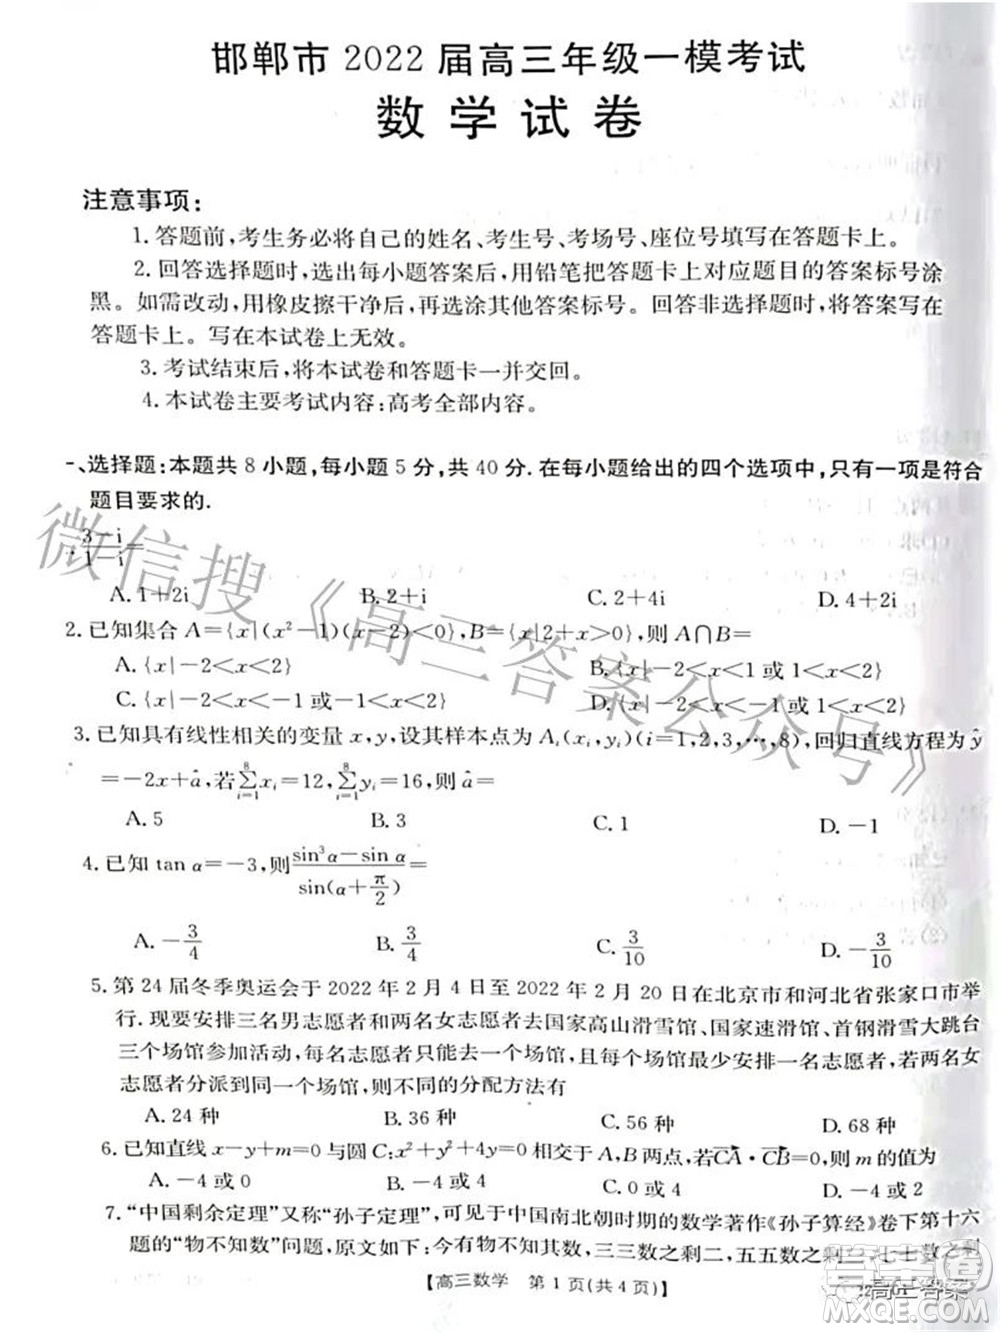 邯郸市 2022 届高三年级一模考试
数 学 试 卷
注意事项:
1. 答题前,考生务必将自己的姓名、考生号、考场号、座位号填写在答题卡上。
2. 回答选择题时,选出每小题答案后,用铅笔把答题卡上对应题目的答案标号涂
黑。如需改动,用橡皮擦干净后,再选涂其他答案标号。回答非选择题时,将答案写在
答题卡上。写在本试卷上无效。
3. 考试结束后,将本试卷和答题卡一并交回。
4. 本试卷主要考试内容:高考全部内容。
一、选择题:本题共 8 小题,每小题 5 分,共 40 分. 在每小题给出的四个选项中,只有一项是符合
题目要求的.
. (3-i)/(1-i)=
A. 1+2i B. 2+i C. 2+4i D. 4+2i
2. 已知集合 A={x|(x²-1)(x-2)<0},B={x|2+x>0},则 A∩B=
A. {x|-2<x<2} B. {x|-2<x<1 或 1<x<2}
C. {x|-2<x<-1 或-1<x<2} D. {x|-2<x<-1 或 1<x<2}
3. 已知具有线性相关的变量 x,y,设其样本点为 Aᵢ(xᵢ,yᵢ)(i=1,2,3,…,8),回归直线方程为 ŷ
=-2x+â,若∑(i=1→8)xᵢ=12,∑(i=1→8)yᵢ=16,则 â=
A. 5 B. 3 C. 1 D. -1
4. 已知 tan α=-3,则 (sin³α-sin α)/(sin(α+π/2))=
A. -3/4 B. 3/4 C. 3/10 D. -3/10
5. 第 24 届冬季奥运会于 2022 年 2 月 4 日至 2022 年 2 月 20 日在北京市和河北省张家口市举
行. 现要安排三名男志愿者和两名女志愿者去国家高山滑雪馆、国家速滑馆、首钢滑雪大跳台
三个场馆参加活动,每名志愿者只能去一个场馆,每个场馆最少安排一名志愿者,若两名女
志愿者分派到同一个场馆,则不同的分配方法有
A. 24 种 B. 36 种 C. 56 种 D. 68 种
6. 已知直线 x-y+m=0 与圆 C:x²+y²+4y=0 相交于 A,B 两点,若CA→·CB→=0,则 m 的值为
A. -4 或 0 B. -4 或 4 C. 0 或 4 D. -4 或 2
7. “中国剩余定理”又称“孙子定理”,可见于中国南北朝时期的数学著作《孙子算经》卷下第十六
题的“物不知数”问题,原文如下:今有物不知其数,三三数之剩二,五五数之剩三,七七数之剩
【高三数学 第 1 页(共 4 页)】
微信搜《高三答案公众号》
高三答案
MXQE.COM